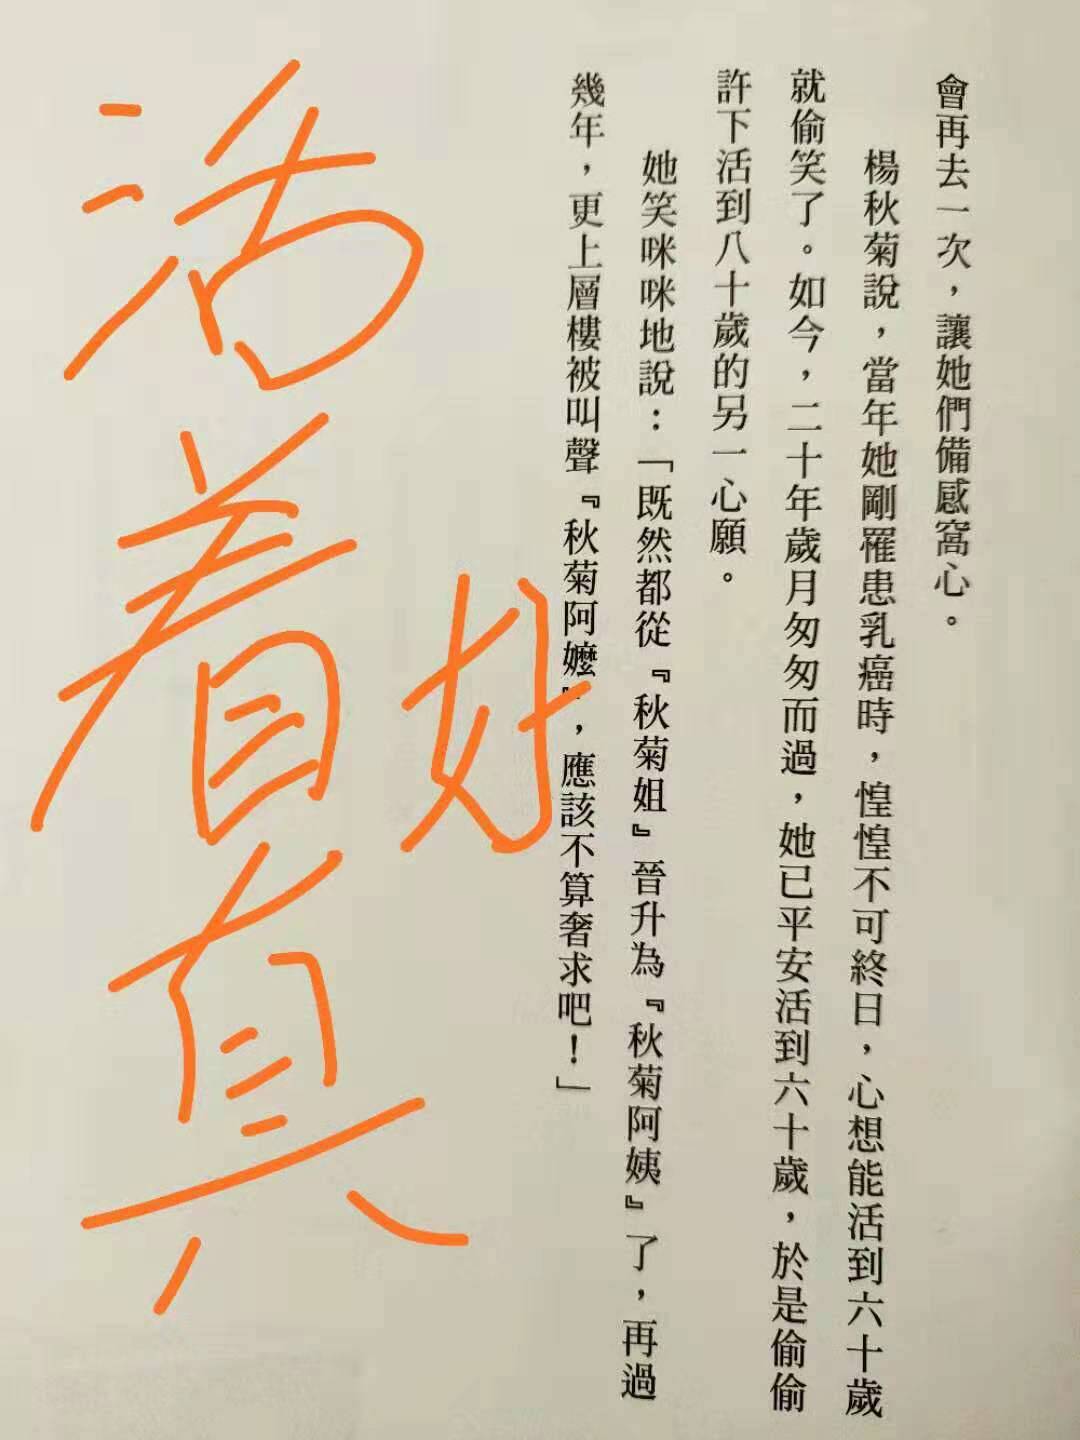 會再去一次，讓她們備感窩心。
楊秋菊說，當年她剛罹患乳癌時，惶惶不可終日，心想能活到六十歲
就偷笑了。如今，二十年歲月匆匆而過，她已平安活到六十歲，於是偷偷
許下活到八十歲的另一心願。
她笑咪咪地說：「既然都從『秋菊姐』晉升為『秋菊阿姨』了，再過
幾年，更上層樓被叫聲『秋菊阿嬤』，應該不算奢求吧！」
活着真
好